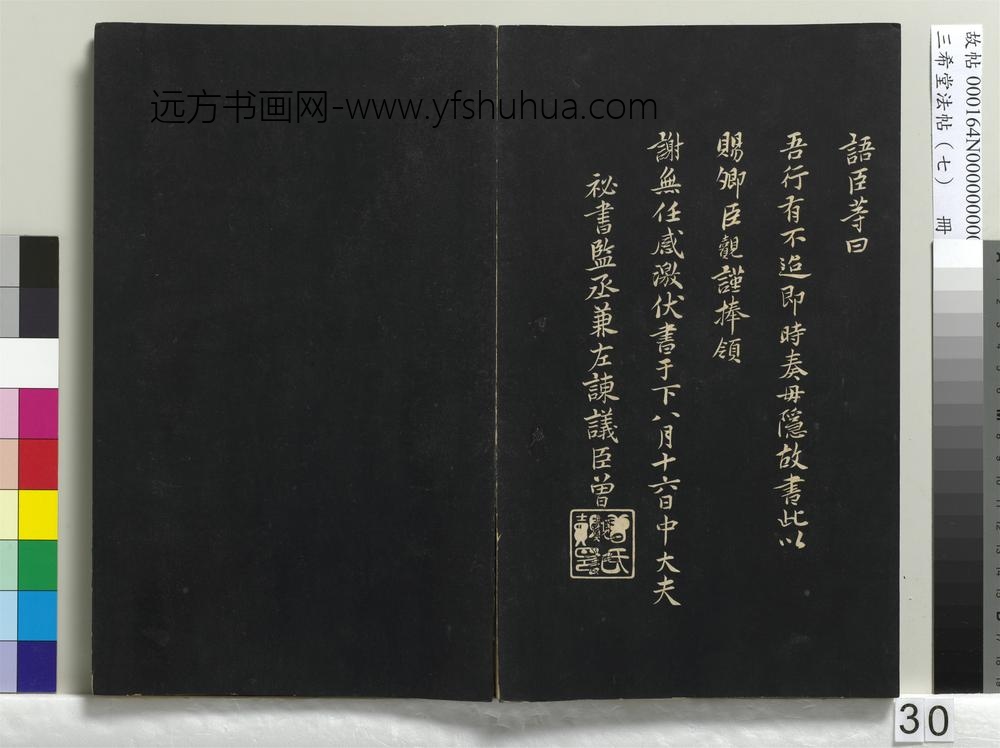 語臣等曰
吾行有不迨即時奏毋隱故書此以
賜卿臣觀謹捧領
謝無任感激伏書于下八月十六日中大夫
祕書監丞兼左諫議臣曾
远方书画网-www.yfshuhua.com
故帖 000164N00000000
三希堂法帖(七) 冊
30